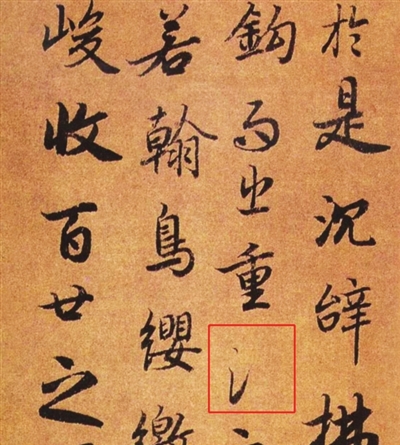 於是沈辭
鉤而出重氵
若翰鳥纓
峻收百廿之